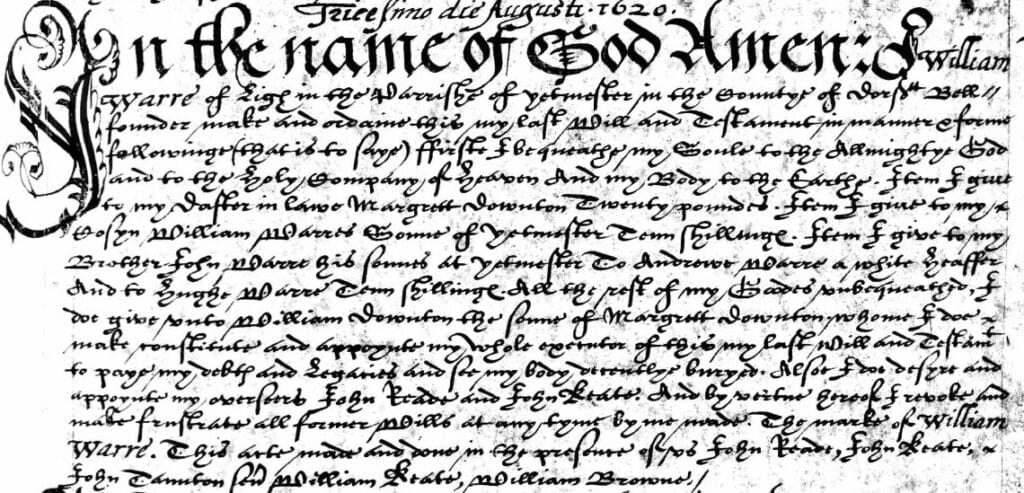 Tricesimo die Augusti. 1620.
In the name of God Amen: I William
Warre of Ligh in the Parrishe of yetmester in the Countye of Dorsett Bell//
founder make and ordaine this my last Will and Testament in manner & forme
followinge (that is to saye) ffirste I bequeathe my Soule to the Allmightye God
and to the Holy Company of Heaven And my Body to the Earthe. Item I give
to my Dafter in lawe Margrett Downton Twenty poundes. Item I give to my
Cosyn William Warres Sonne of yetmester Tenn shillinges. Item I give to my
Brother John Warre his sonnes at yetmester To Andrewe Warre a white Heaffer
And to Hughe Warre Tenn shillinges. All the rest of my Godes unbequeathed, I
doe give unto William Downton the sonne of Margrett Downton whome I doe
make constitute and appoynte my whole executor of this my last Will and Testamt
to paye my debts and Legacies and see my body decentlye buryed. Alsoe I doe desyre and
appoynte my overseers John Reade and John Keate. And by vertue herof I revoke and
make frustrate all former Wills at any tyme by me made. The marke of William
Warre. This acte made and done in the presence of us John Reade, John Keate, &
John Taunton senr William Keate, William Browne,/